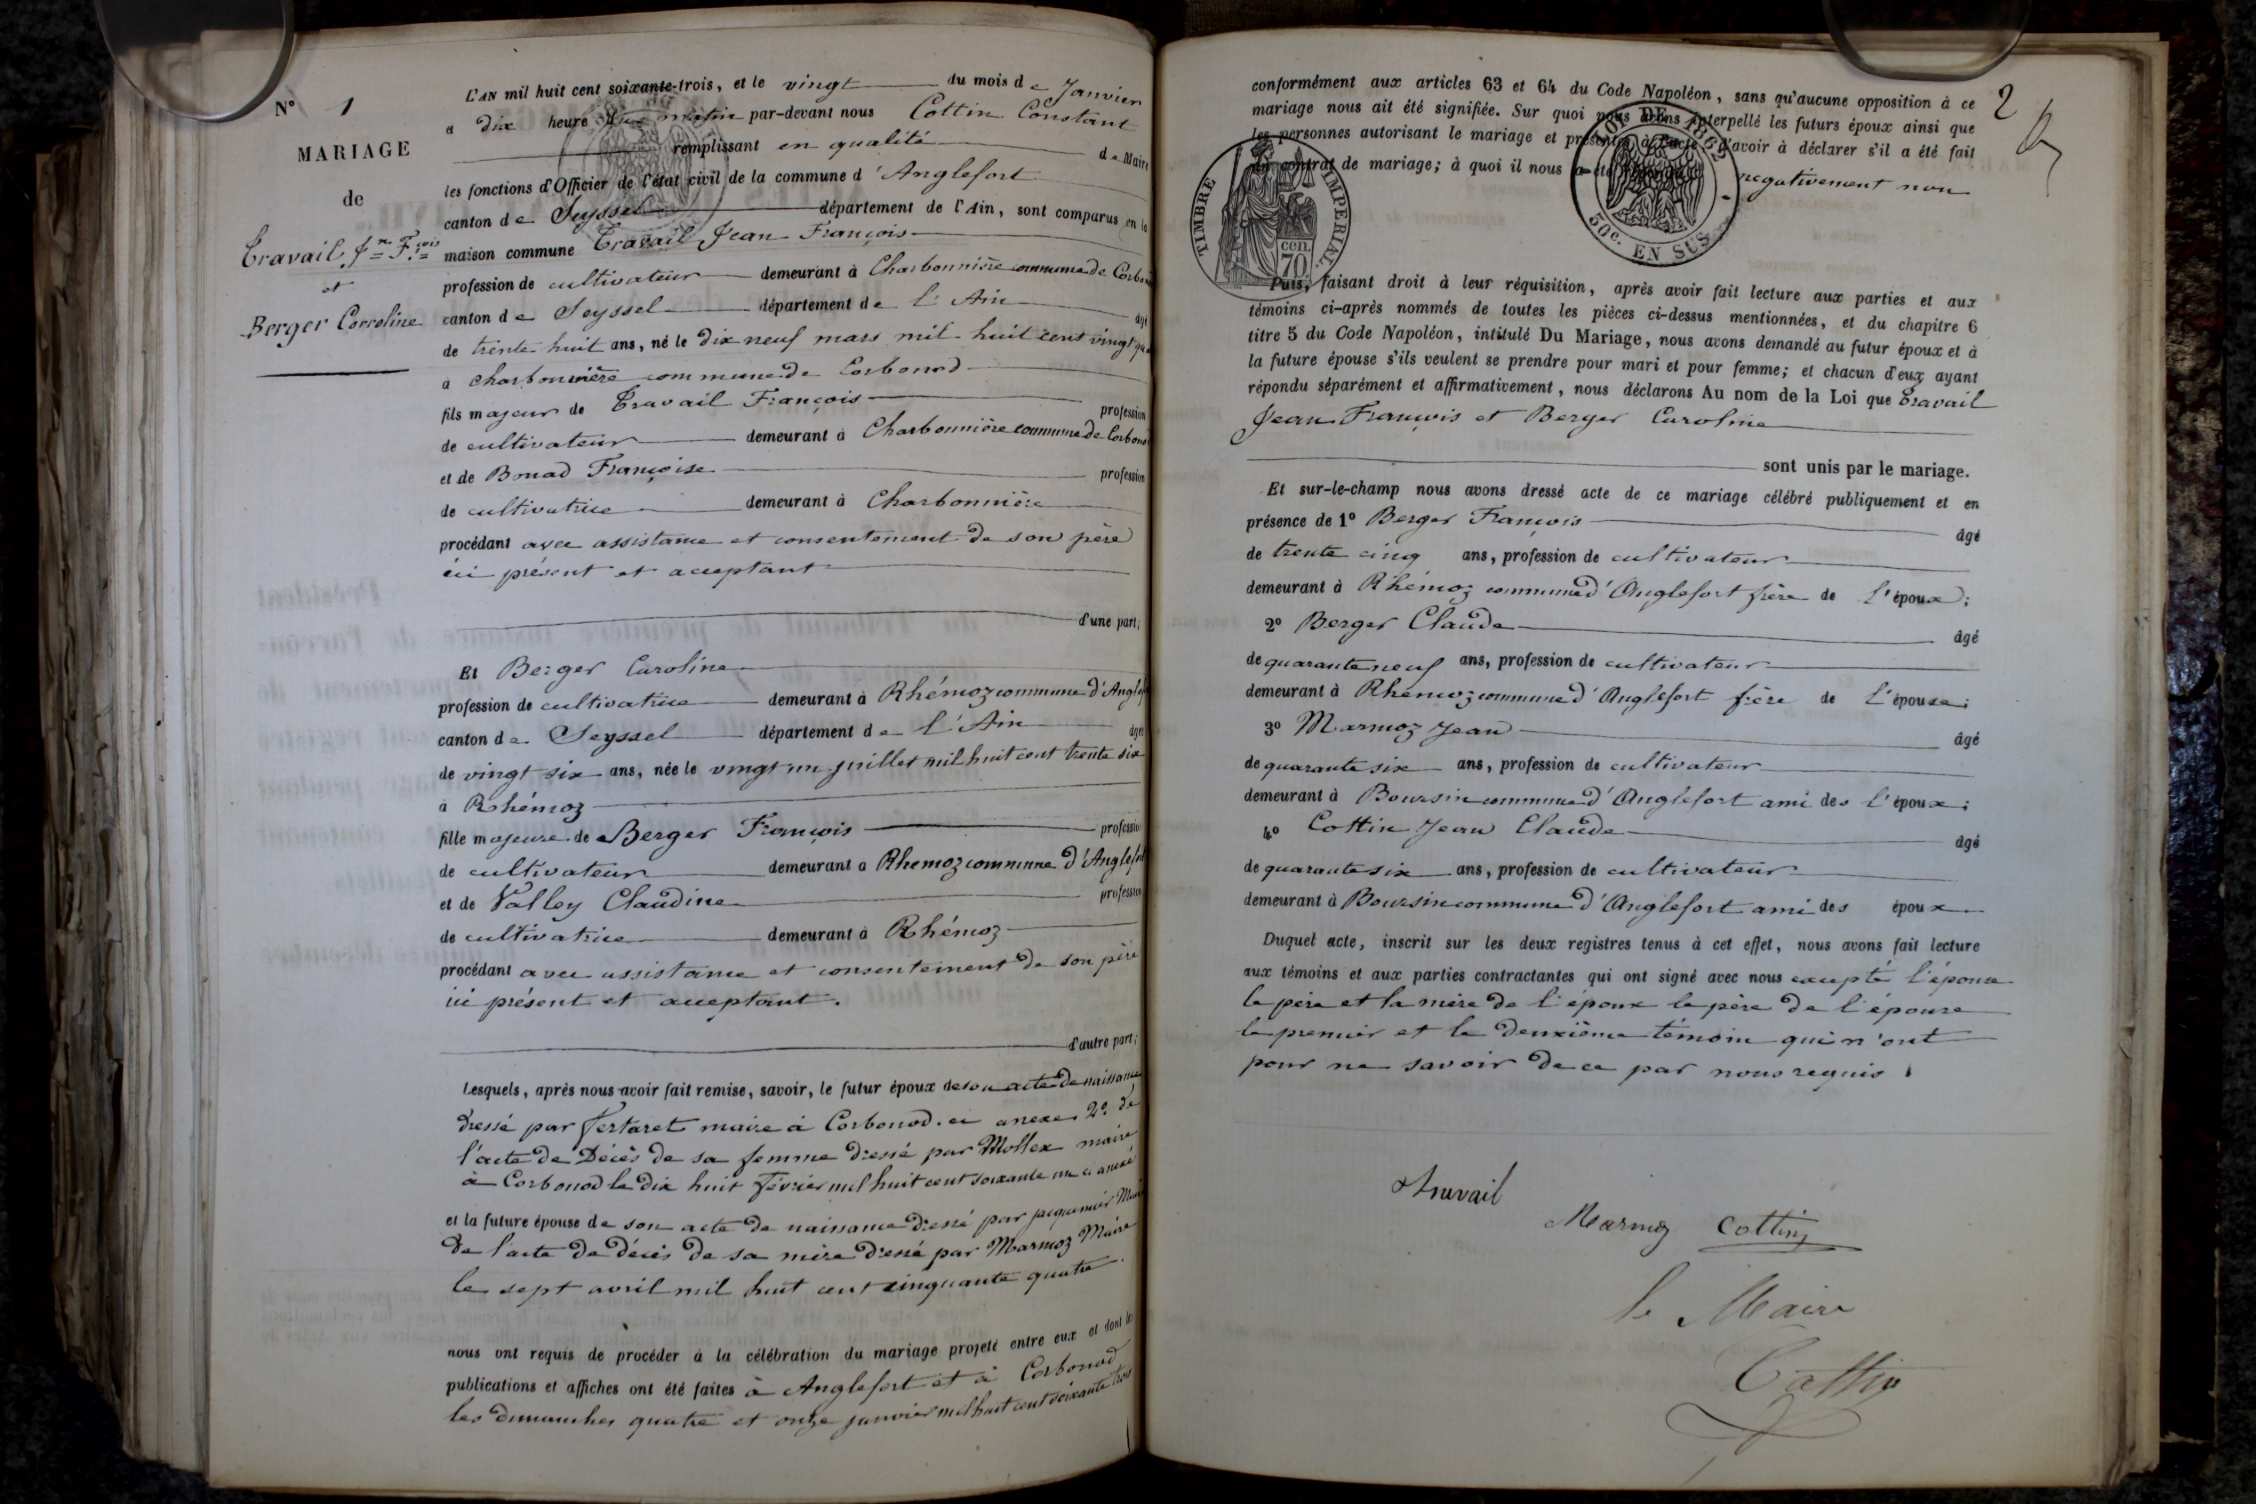 N° 1
MARIAGE
de
Travail Jn Fçois
et
Berger Corroline
L'AN mil huit cent soixante-trois, et le vingt du mois de Janvier
a dix heure du matin par-devant nous Cottin Constant
remplissant en qualité de Maire
les fonctions d'Officier de l'état civil de la commune d'Anglefort
canton de Seyssel département de l'Ain, sont comparus en la
maison commune Travail Jean François
profession de cultivateur demeurant à Charbonnière commune de Corbonod
canton de Seyssel département de l'Ain âgé
de trente huit ans, né le dix neuf mars mil huit cent vingt
a charbonnière commune de Corbonod
fils majeur de Travail François profession
de cultivateur demeurant à Charbonnière commune de Corbonod
et de Bonad Françoise profession
de cultivatrice demeurant à Charbonnière
procédant avec assistance et consentement de son père
ici présent et acceptant
d'une part;
Et Berger Caroline
profession de cultivatrice demeurant à Rhémoz commune d'Anglefort
canton de Seyssel département de l'Ain âgée
de vingt six ans, née le vingt un juillet mil huit cent trente six
à Rhémoz
fille majeure de Berger François profession
de cultivateur demeurant a Rhemoz commune d'Anglefort
et de Valley Claudine profession
de cultivatrice demeurant à Rhémoz
procédant avec assistance et consentement de son père
ici présent et acceptant.
d'autre part;
Lesquels, après nous avoir fait remise, savoir, le futur époux de son acte de naissance
dressé par Fertaret maire à Corbonod. ci anexe 2° de
l'acte de Décès de sa femme dressé par Mollex maire
à Corbonod le dix huit Février mil huit cent soixante un ci anexé
et la future épouse de son acte de naissance dressé par jacquemier Maire
de l'acte de décès de sa mère dressé par Marmoz Maire
le sept avril mil huit cent cinquante quatre.
nous ont requis de procéder à la célébration du mariage projeté entre eux et dont les
publications et affiches ont été faites à Anglefort et à Corbonod
les dimanches quatre et onze janvier mil huit cent soixante trois
2
conformément aux articles 63 et 64 du Code Napoléon, sans qu'aucune opposition à ce
mariage nous ait été signifiée. Sur quoi nous avons interpellé les futurs époux ainsi que
les personnes autorisant le mariage et présentes à l'acte d'avoir à déclarer s'il a été fait
un contrat de mariage; à quoi il nous a été répondu negativement non
TIMBRE IMPERIAL.
cen. 70
LOI DE 1862
50c. EN SUS
Puis, faisant droit à leur réquisition, après avoir fait lecture aux parties et aux
témoins ci-après nommés de toutes les pièces ci-dessus mentionnées, et du chapitre 6
titre 5 du Code Napoléon, intitulé Du Mariage, nous avons demandé au futur époux et à
la future épouse s'ils veulent se prendre pour mari et pour femme; et chacun d'eux ayant
répondu séparément et affirmativement, nous déclarons Au nom de la Loi que Travail
Jean François et Berger Caroline
sont unis par le mariage.
Et sur-le-champ nous avons dressé acte de ce mariage célébré publiquement et en
présence de 1° Berger François âgé
de trente cinq ans, profession de cultivateur
demeurant à Rhémoz commune d'Anglefort frère de l'époux;
2° Berger Claude âgé
de quarante neuf ans, profession de cultivateur
demeurant à Rhémoz commune d'Anglefort frère de l'épouse;
3° Marmoz Jean âgé
de quarante six ans, profession de cultivateur
demeurant à Boursin commune d'Anglefort ami des l'époux;
4° Cottin Jean Claude âgé
de quarante six ans, profession de cultivateur
demeurant à Boursin commune d'Anglefort ami des époux
Duquel acte, inscrit sur les deux registres tenus à cet effet, nous avons fait lecture
aux témoins et aux parties contractantes qui ont signé avec nous excepté l'épouse
le père et la mère de l'époux le père de l'épouse
le premier et le deuxième témoin qui n'ont
pour ne savoir de ce par nous requis.
Travail
Marmoz Cottin
le Maire
Cottin